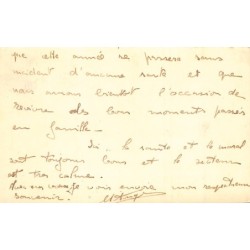 que cette année se passera sans
incident d'aucune sorte et que
nous aurons bientôt l'occasion de
revivre des bons moments passés
en famille –
Ici – la santé et le moral
sont toujours bons et le secteur
est très calme.
vous envoie mon respectueux
souvenir.